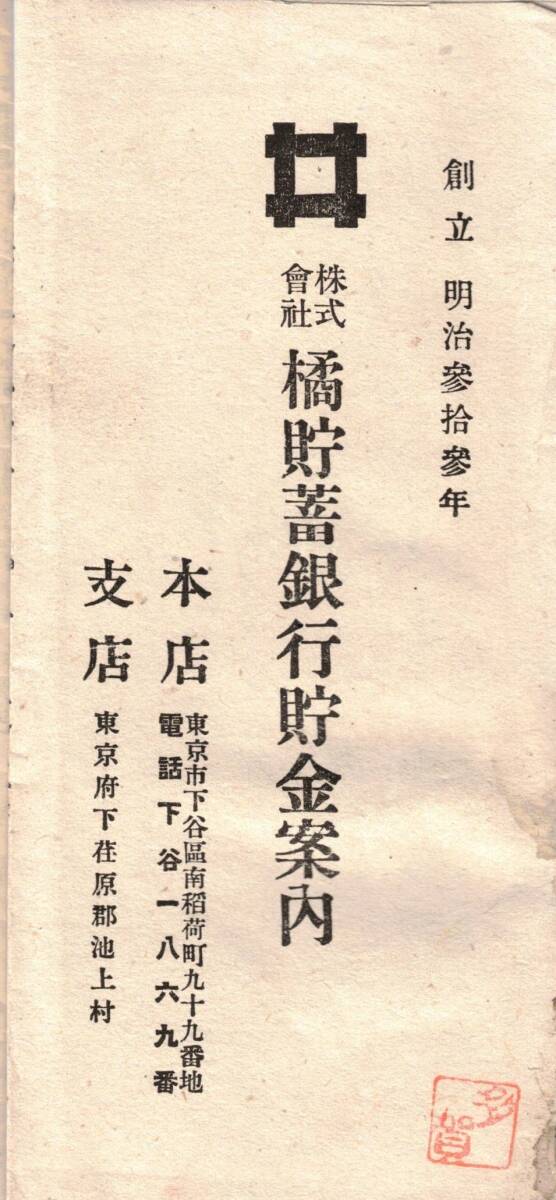 創立 明治參拾參年
株式會社 橘貯蓄銀行貯金案內
本店 東京市下谷區南稻荷町九十九番地
電話下谷一八六九番
支店 東京府下荏原郡池上村
多賀